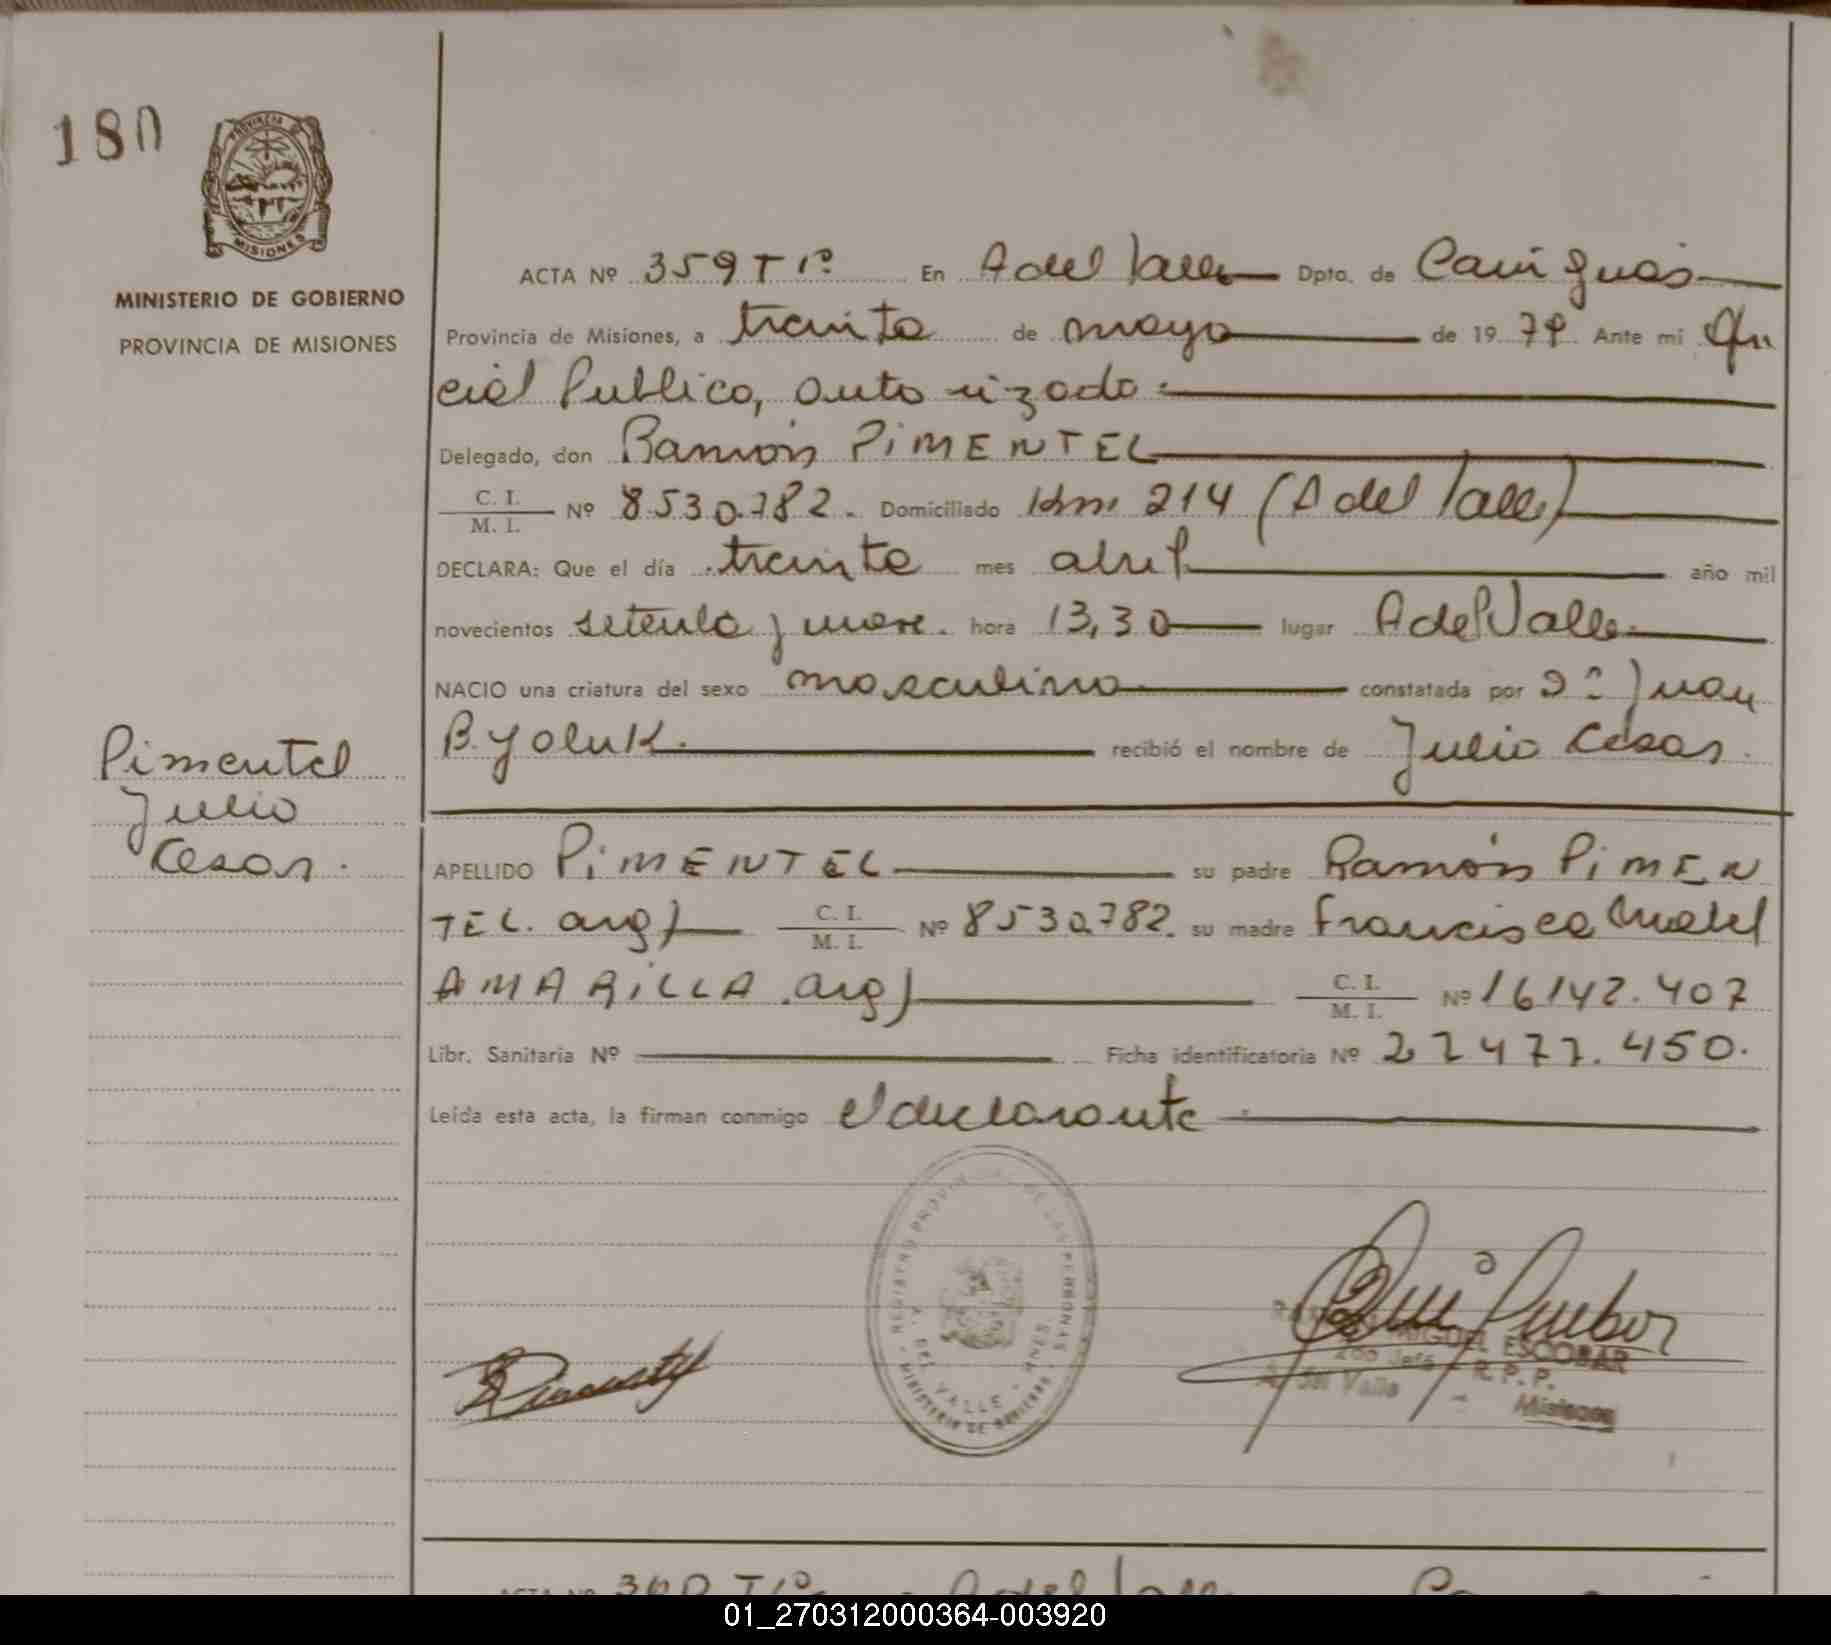 180
PROVINCIA
MISIONES
MINISTERIO DE GOBIERNO
PROVINCIA DE MISIONES
ACTA Nº 359 Tº 1º En A del Valle Dpto. de Cainguas
Provincia de Misiones, a treinta de mayo de 1979 Ante mi Ofi
cial Publico, autorizado
Delegado, don Ramón PIMENTEL
C. I.
M. I. Nº 8.530.782. Domiciliado Km 214 (A del Valle)
DECLARA: Que el día treinta mes abril año mil
novecientos setenta y nueve. hora 13,30 lugar A del Valle
NACIO una criatura del sexo masculino constatada por Dº Juan
B. Yoluk. recibió el nombre de Julio Cesar.
Pimentel
Julio
Cesar.
APELLIDO PIMENTEL su padre Ramón PIMEN
TEL. arg) C. I. M. I. Nº 8.530.782. su madre Francisca Mabel
AMARILLA. arg) C. I. M. I. Nº 16.142.407
Libr. Sanitaria Nº Ficha identificatoria Nº 27.477.450.
Leída esta acta, la firman conmigo el declarante
REGISTRO PROVINCIAL DE LAS PERSONAS
A. DEL VALLE - MNES.
MINISTERIO DE GOBIERNO
MIGUEL ESCOBAR
Jefe R. P. P.
A. del Valle - Misiones
ACTA Nº 360 Tº 1º A del Valle
01_270312000364-003920